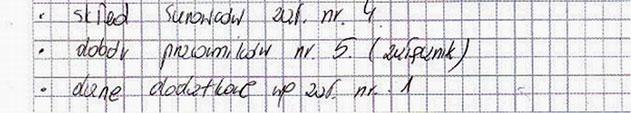 • skład surowców zał. nr. 4
• dobór pracowników nr. 5. (załącznik)
• dane dodatkowe wp zał. nr. 1